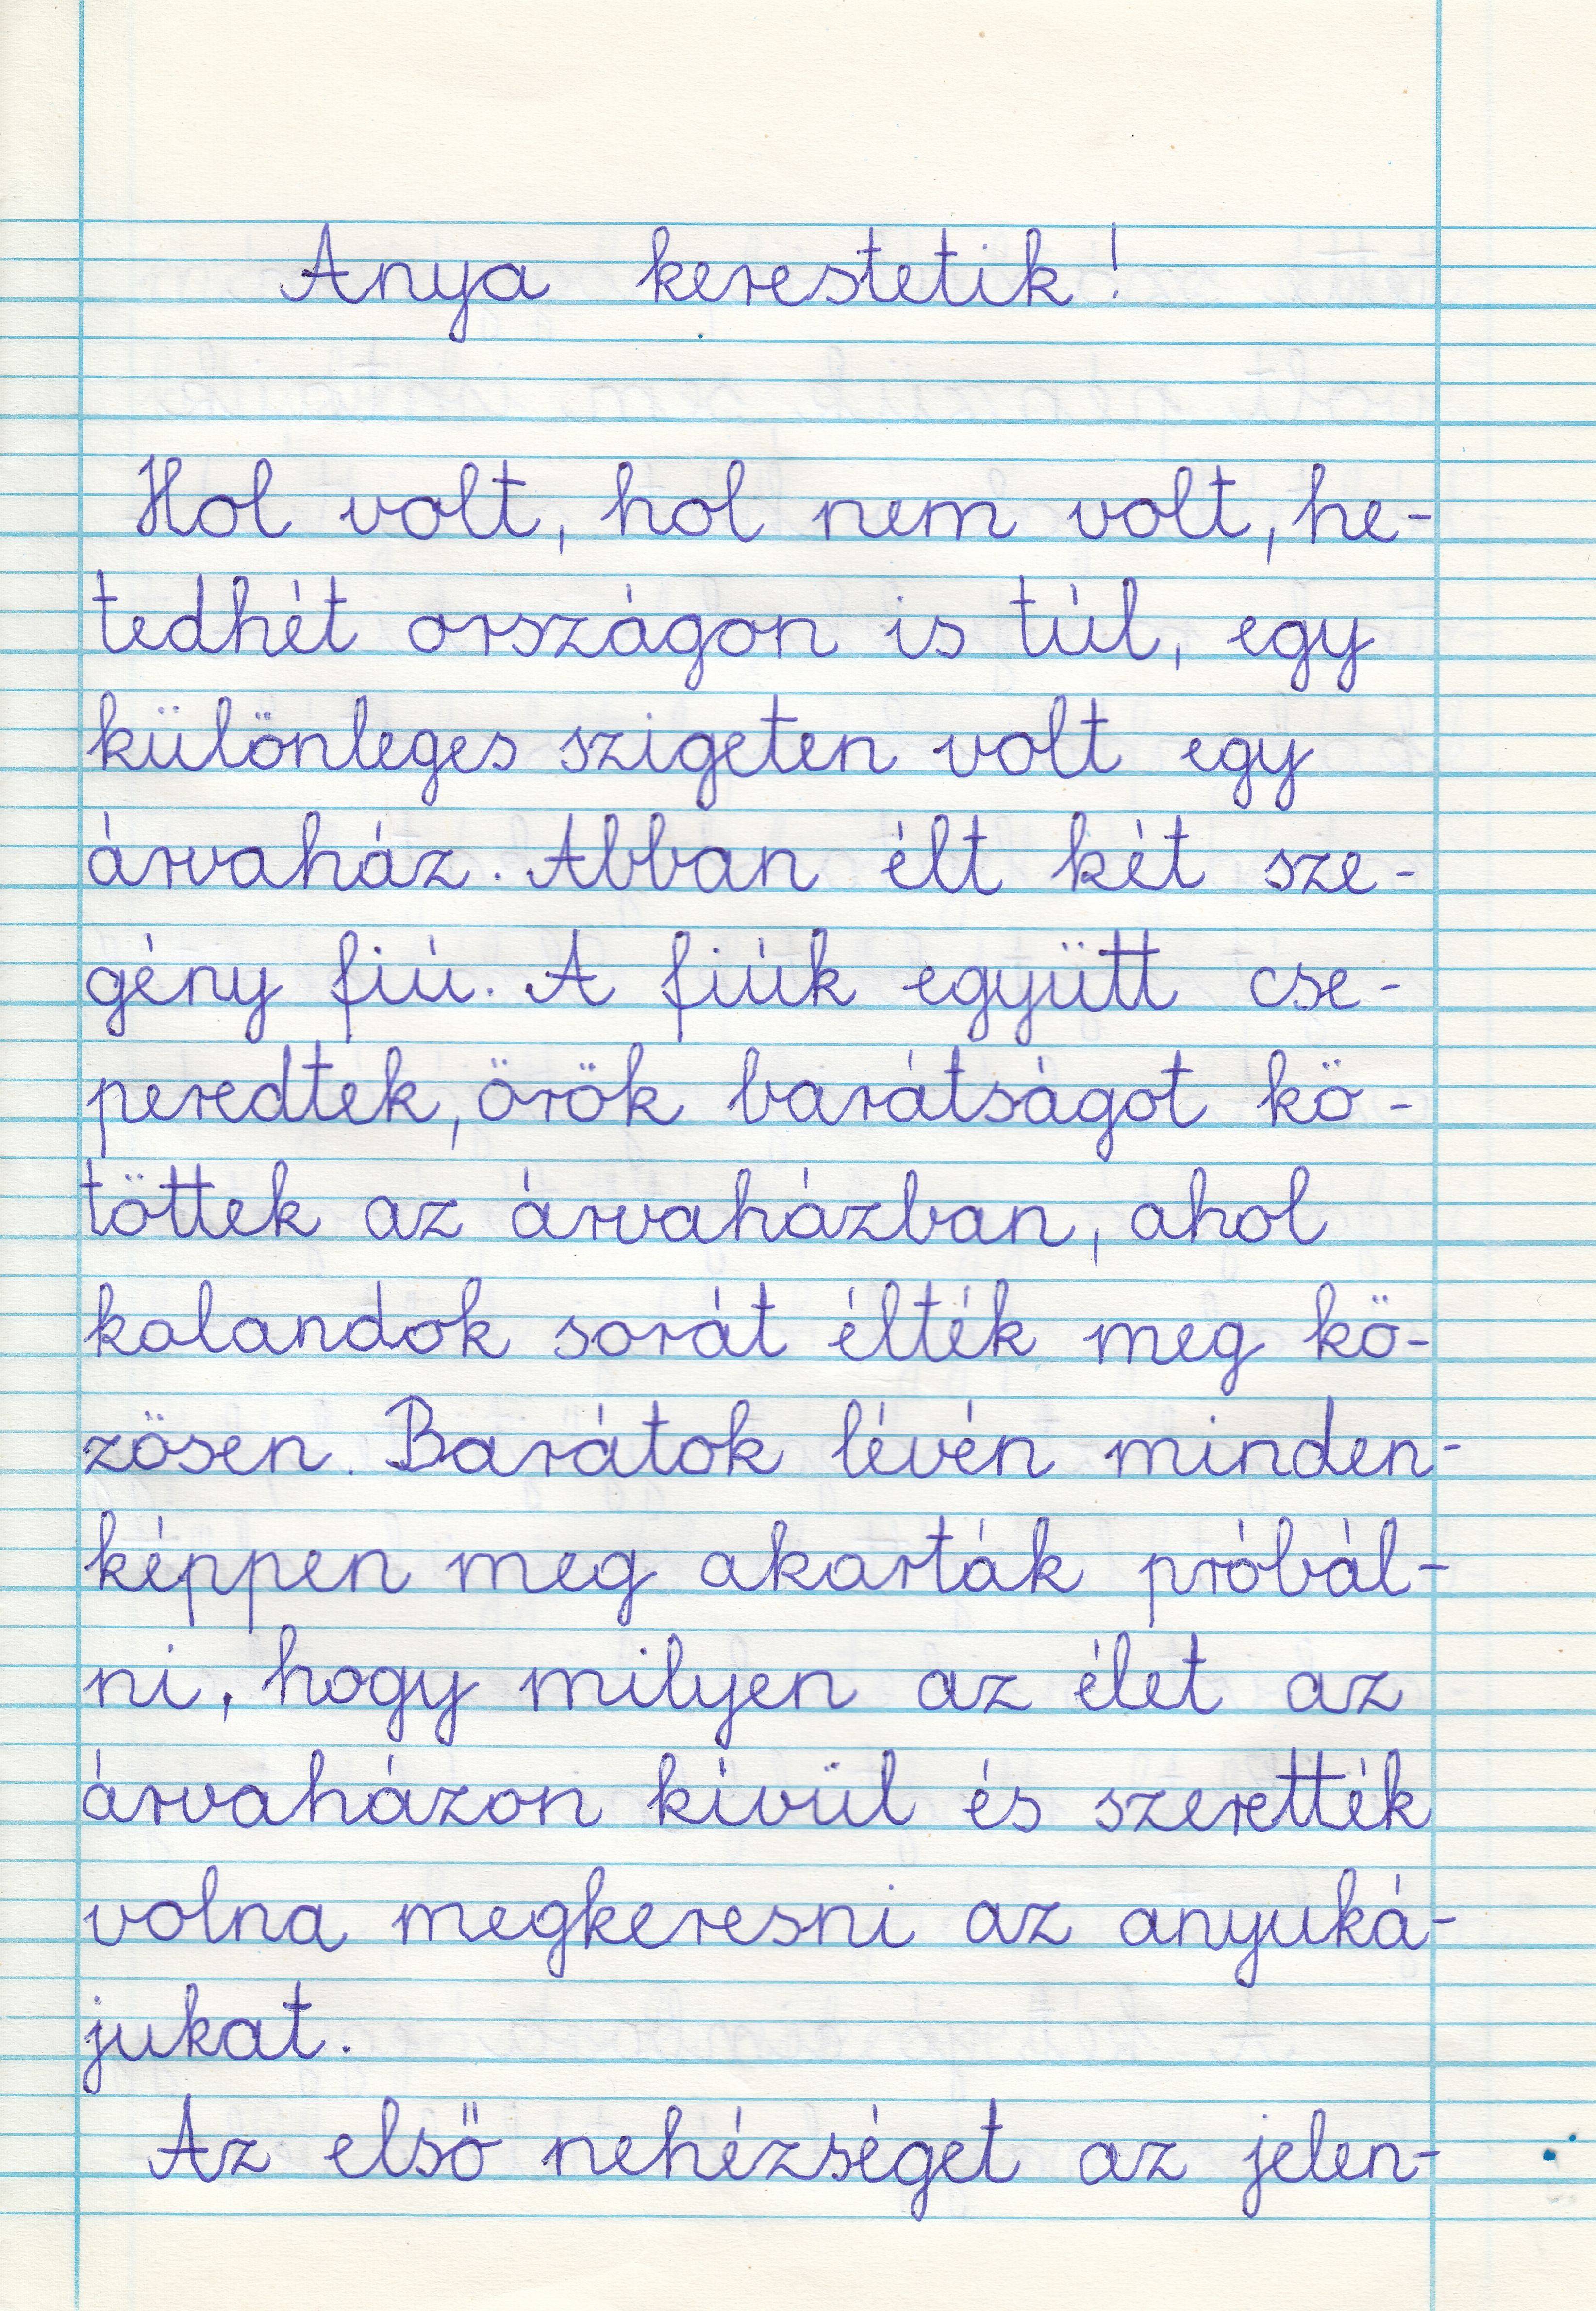 Anya kerestetik!
Hol volt, hol nem volt, he-
tedhét országon is túl, egy
különleges szigeten volt egy
árvaház. Abban élt két sze-
gény fiú. A fiúk együtt cse-
peredtek, örök barátságot kö-
töttek az árvaházban, ahol
kalandok sorát élték meg kö-
zösen. Barátok lévén minden-
képpen meg akarták próbál-
ni, hogy milyen az élet az
árvaházon kívül és szerették
volna megkeresni az anyuká-
jukat.
Az első nehézséget az jelen-